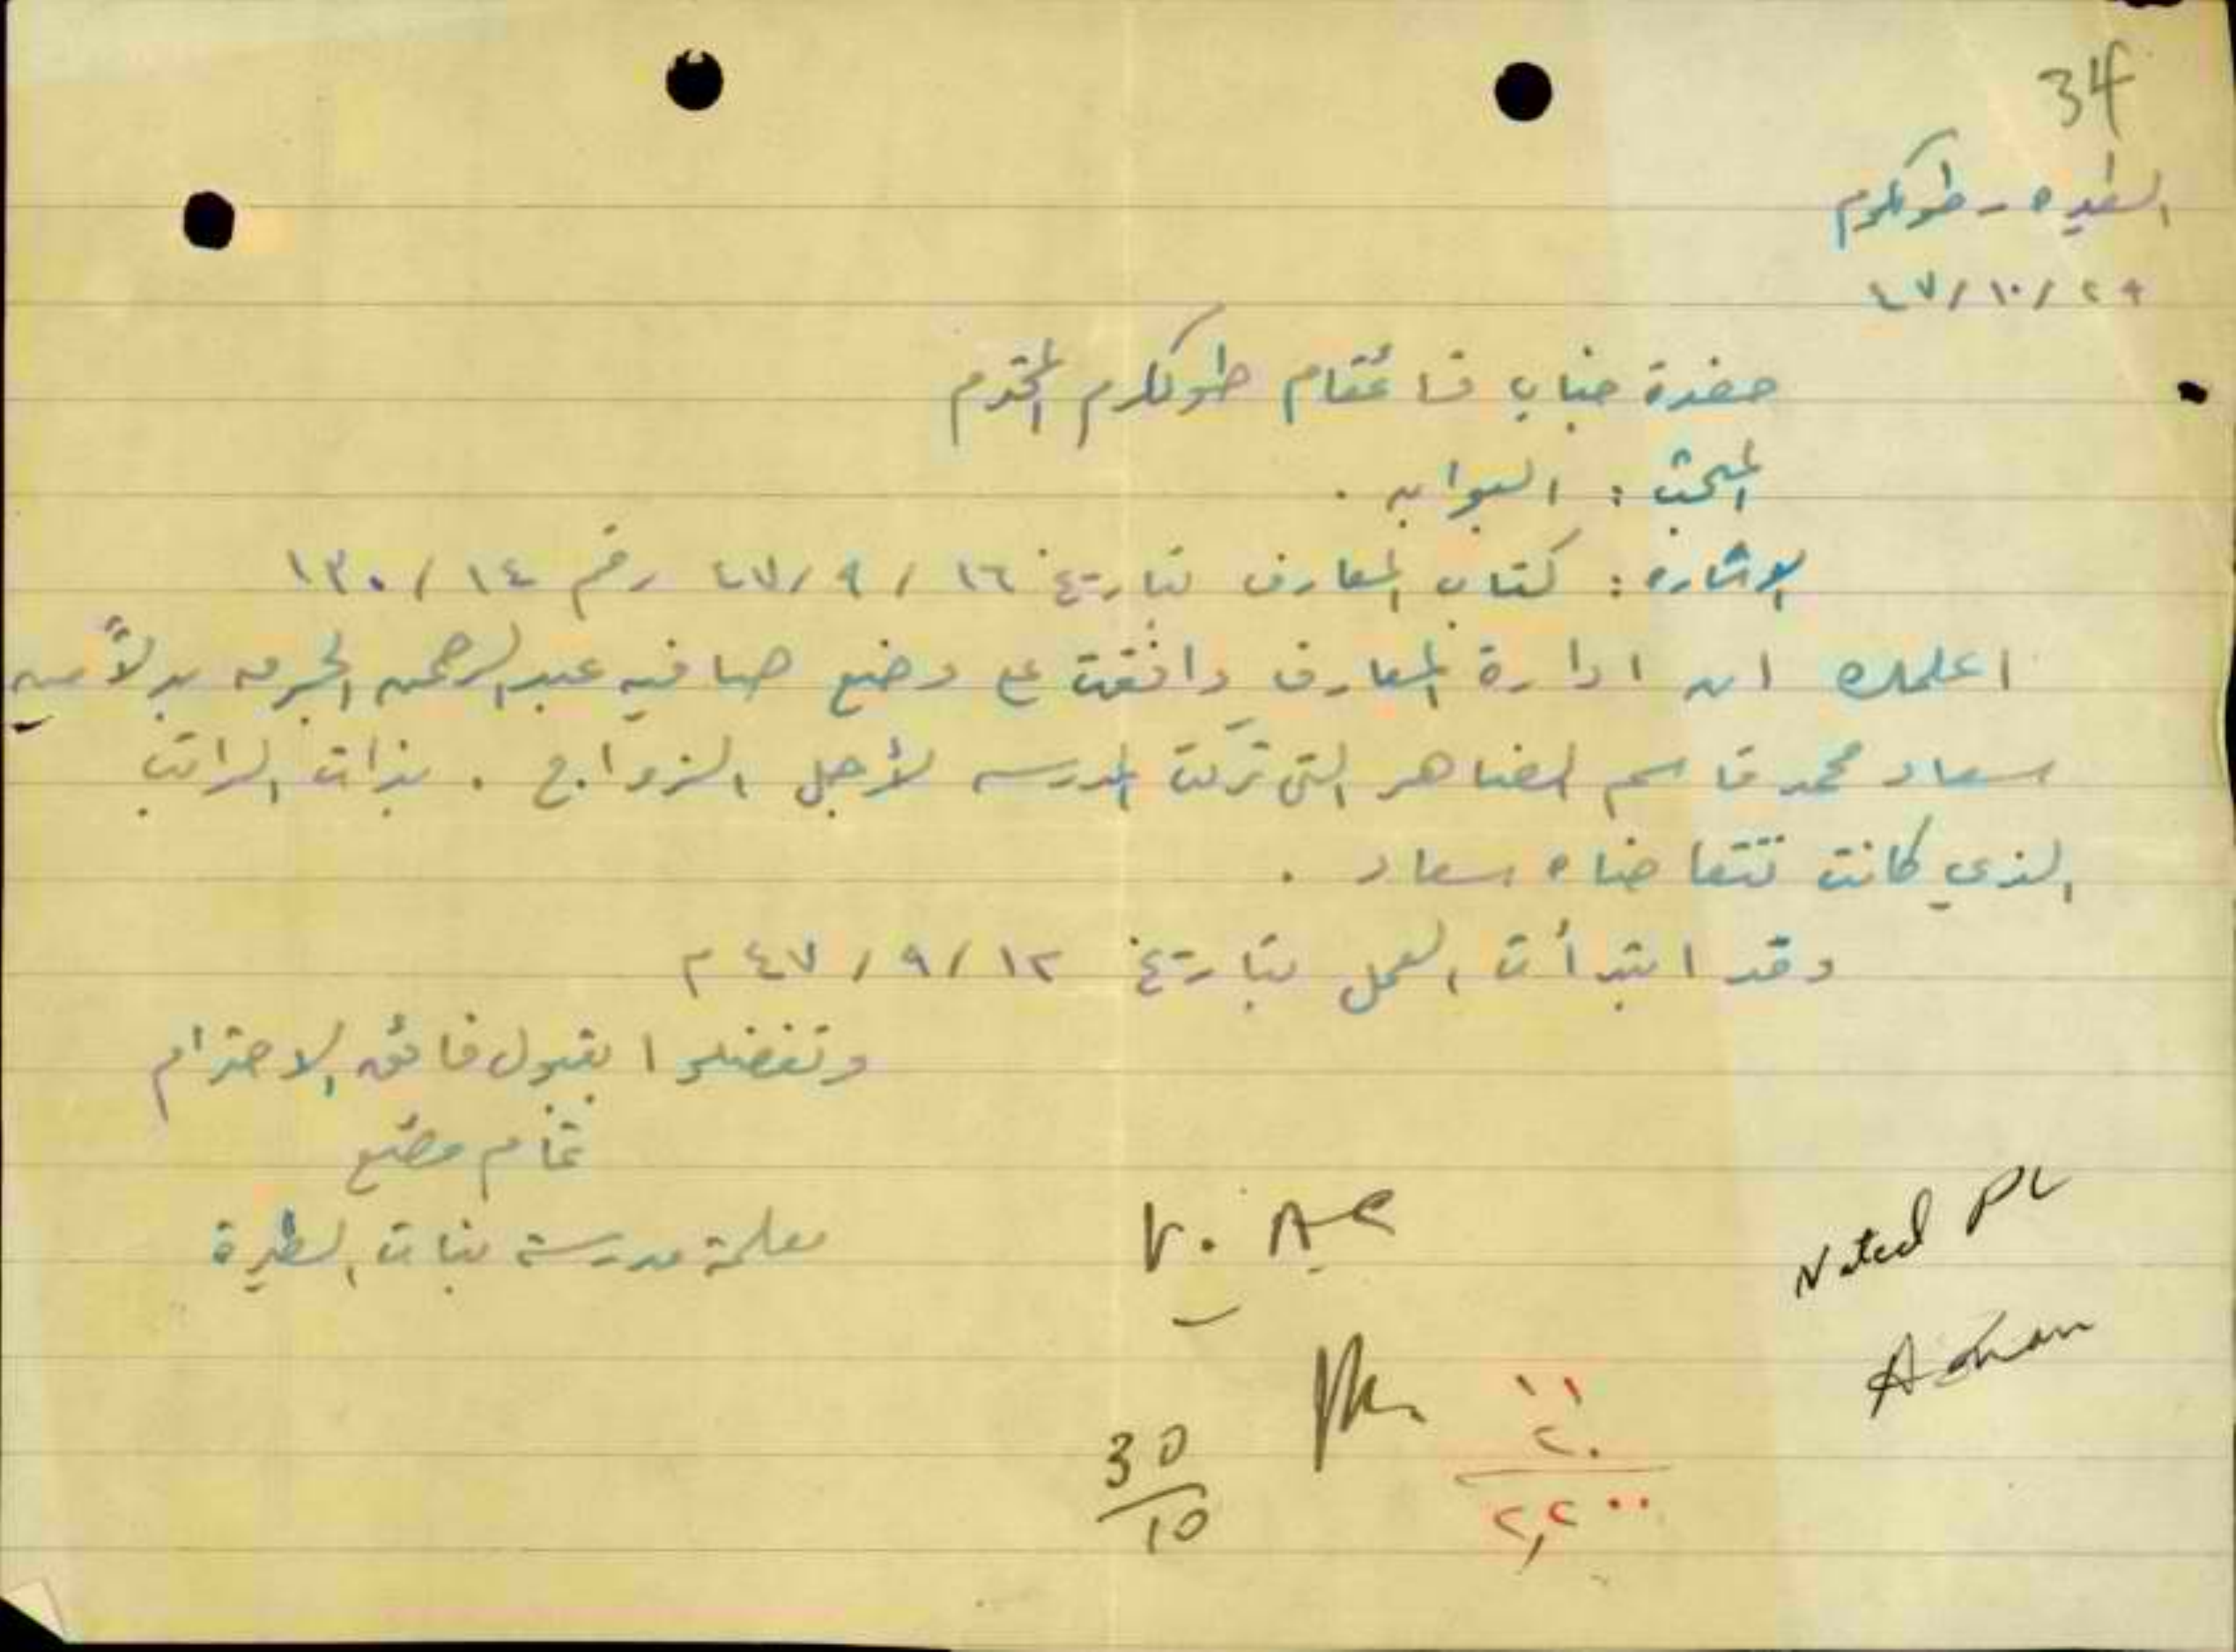 34
الطيره - طولكرم
٤٧/١٠/٢٩
حضرة جناب قائمقام طولكرم المحترم
المبحث : البوابه .
الاشاره : كتاب المعارف بتاريخ ١٦ / ٩ / ٤٧ رقم ١٤ / ١٣٠
اعلمك ان ادارة المعارف وافقت على وضع صافيه عبد الرحمن بدلاً من
سعاد محمد قاسم الضاهر التي تركت المدرسه لأجل الزواج . بذات الراتب
الذي كانت تتقاضاه سعاد .
وقد ابتدأت العمل بتاريخ ١٢ / ٩ / ٤٧ م
وتفضلوا بقبول فائق الاحترام
معلمة مدرسة بنات الطيرة
Noted
Adnan
30
10
١١
٢٠
٢,٢٠٠